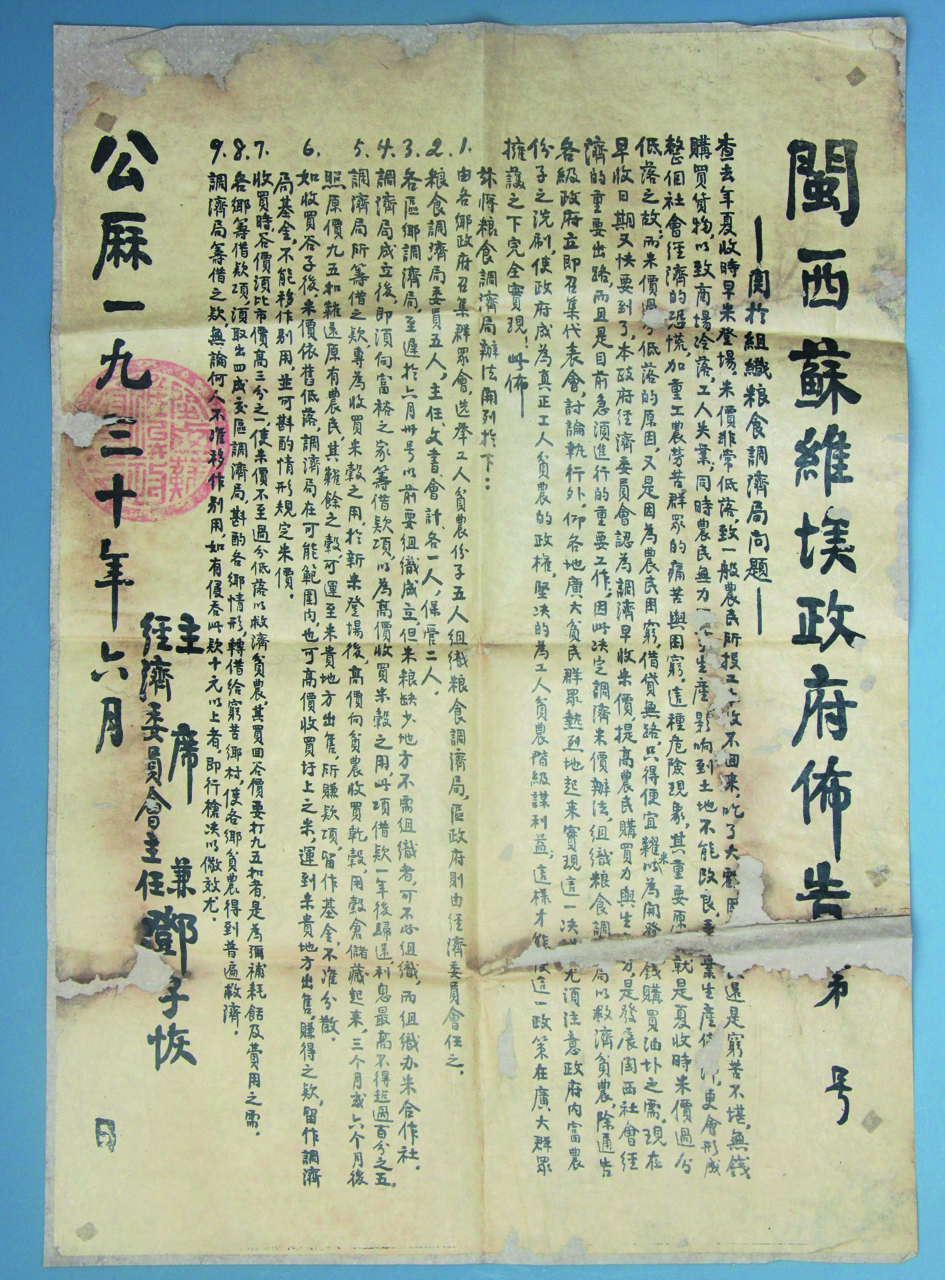 閩西蘇維埃政府佈告 第 号
—関於組織粮食調濟局问題—
查去年夏收時早米登場，米價非常低落，致一般農民所投工 收不回来，吃了大虧， 還是窮苦不堪，無錢
購買貨物，以致商場冷落，工人失業，同時農民無力 生產，影响到土地不能改良， 業生產 更會形成
整個社會經濟的恐慌，加重工農勞苦群眾的痛苦與困窮，這種危險現象，其重要原 就是夏收時米價過分
低落之故，而米價過分低落的原因又是因為農民困窮，借貸無路，只得便宜糶米以為開發 錢購買油卟之需，現在
早收日期又快要到了，本政府經濟委員會認為調濟早收米價，提高農民購買力與生 力，是發展閩西社會經
濟的重要出路，而且是目前急須進行的重要工作，因此决定調濟米價辦法，組織粮食調 局以救濟貧農，除通告
各級政府立即召集代表會，討論執行外，仰各地廣大貧民群眾熱烈地起来實現這一决 尤須注意政府内富農
份子之洗刷，使政府成為真正工人貧農的政權，堅决的為工人貧農階級謀利益，這樣才能使這一政策在廣大群眾
擁護之下完全實現！此佈—
玆將粮食調濟局辦法開列於下：
1.由各鄉政府召集群眾會，选举工人貧農份子五人組織粮食調濟局，區政府則由經濟委員會任之。
2.粮食調濟局委員五人，主任、文書會計、各一人，保管二人。
3.各區鄉調濟局，至遲於六月卅号以前要組織成立，但米粮缺少地方不需組織者，可不必組織，而組織办米合作社。
4.調濟局成立後，即須向富裕之家籌借款項，以為高價收買米穀之用，此項借款一年後歸还，利息最高不得超過百分之五。
5.調濟局所籌借之款，專為收買米穀之用，於新米登場後，高價向貧農收買乾穀，用穀倉儲藏起来，三个月或六个月後
照原價九五扣糶還原有農民，其糶餘之穀，可運至米貴地方出售，所賺款項，留作基金，不准分散。
6.如收買谷子後米價依舊低落，調濟局在可能範圍内，也可高價收買圩上之米，運到米貴地方出售，賺得之款，留作調濟
局基金，不能移作别用，並可斟酌情形規定米價。
7.收買時谷價須比市價高三分之一，使米價不至過分低落以救濟貧農，其買回谷價要打九五扣者，是為彌補耗蝕及費用之需。
8.各鄉籌借款項，須取出四成交區調濟局，斟酌各鄉情形，轉借給窮苦鄉村，使各鄉貧農得到普遍救濟。
9.調濟局籌借之款無論何人不准移作别用，如有侵吞此款十元以上者，即行槍决以儆效尤。
主席兼
經濟委員會主任 鄧子恢
公厤一九三十年六月 日